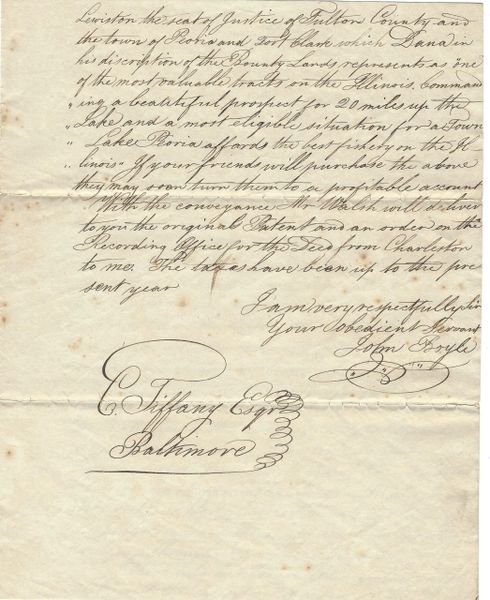 Lewiston the seat of Justice of Fulton County and
the town of Peoria and Fort Clark which Dana in
his discription of the Bounty Lands represents as "one
of the most valuable tracts on the Illinois, Command
" ing a beautiful prospect for 20 miles up the
" Lake and a most eligible situation for a Town
" Lake Peoria affords the best fishery on the Il-
" linois" If your friends will purchase the above
they may soon turn them to a profitable account
With the conveyance Mr Walsh will deliver
to you the original Patent and an order on the
Recording Office for the Deed from Charleston
to me. The taxes have been up to the pre
sent year
I am very respectfully Sir
Your obedient Servant
John Boyle
C. Tiffany Esqr
Baltimore